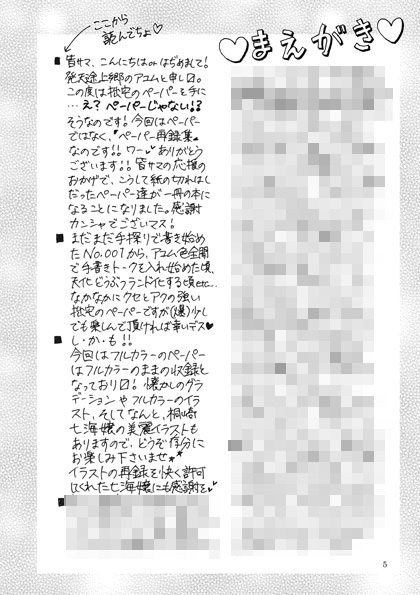 ♡まえがき♡
ここから
読んでちょ♡
■皆サマ、こんにちはorはぢめまして!
発天途上郷のアユムと申し〼。
この度は拙宅のペーパーを手に
…え?ペーパーじゃない!?
そうなのです!今回はペーパー
ではなく、〝ペーパー再録集〟
なのです!!ワー♥ありがとう
ございます!!皆サマの応援の
おかげで、こうして紙の切れはし
だったペーパー達が一冊の本に
なることになりました。感謝
カンシャでございマス!
■まだまだ手探りで書き始め
たNo.001から、アユム色全開
で手書きトークを入れ始めた頃、
天化どうぶつランド化する頃etc…
なかなかにクセとアクの強い
拙宅のペーパーですが(爆)少し
でも楽しんで頂ければ幸いデス♥
■し・か・も!!
今回はフルカラーのペーパー
はフルカラーのままの収録と
なっており〼!懐かしのグラ
デーションやフルカラーのイラ
スト、そしてなんと、桐崎
七海嬢の美麗イラストも
ありますので、どうぞ存分に
お楽しみ下さいませ★★
イラストの再録を快く許可
してくれた七海嬢にも感謝を♥
5